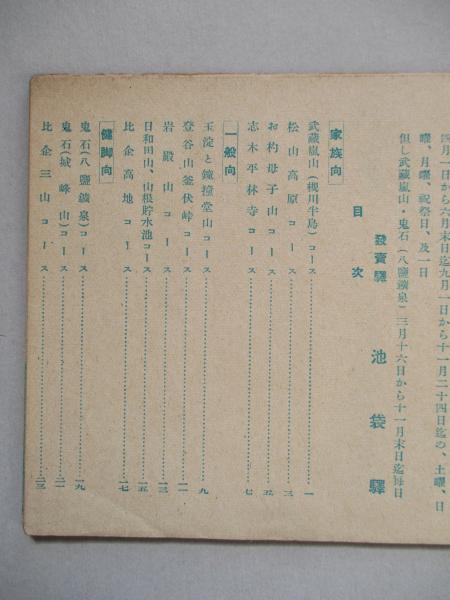 四月一日から六月末日迄九月一日から十一月二十四日迄の、土曜、日
曜、月曜、祝祭日、及一日
但し武蔵嵐山・鬼石(八鹽鑛泉)三月十六日から十一月末日迄毎日
發賣驛 池袋驛
目次
家族向
武蔵嵐山(槻川半島)コース……一
松山高原コース……三
物見山コース……五
志木平林寺コース……七
一般向
玉淀と鐘撞堂山コース……九
登谷山釜伏峠コース……一一
岩殿山コース……一三
日和田山、山根貯水池コース……一五
比企高地コース……一七
健脚向
鬼石(八鹽鑛泉)コース……一九
鬼石(城峰山)コース……二一
比企三山コース……二三